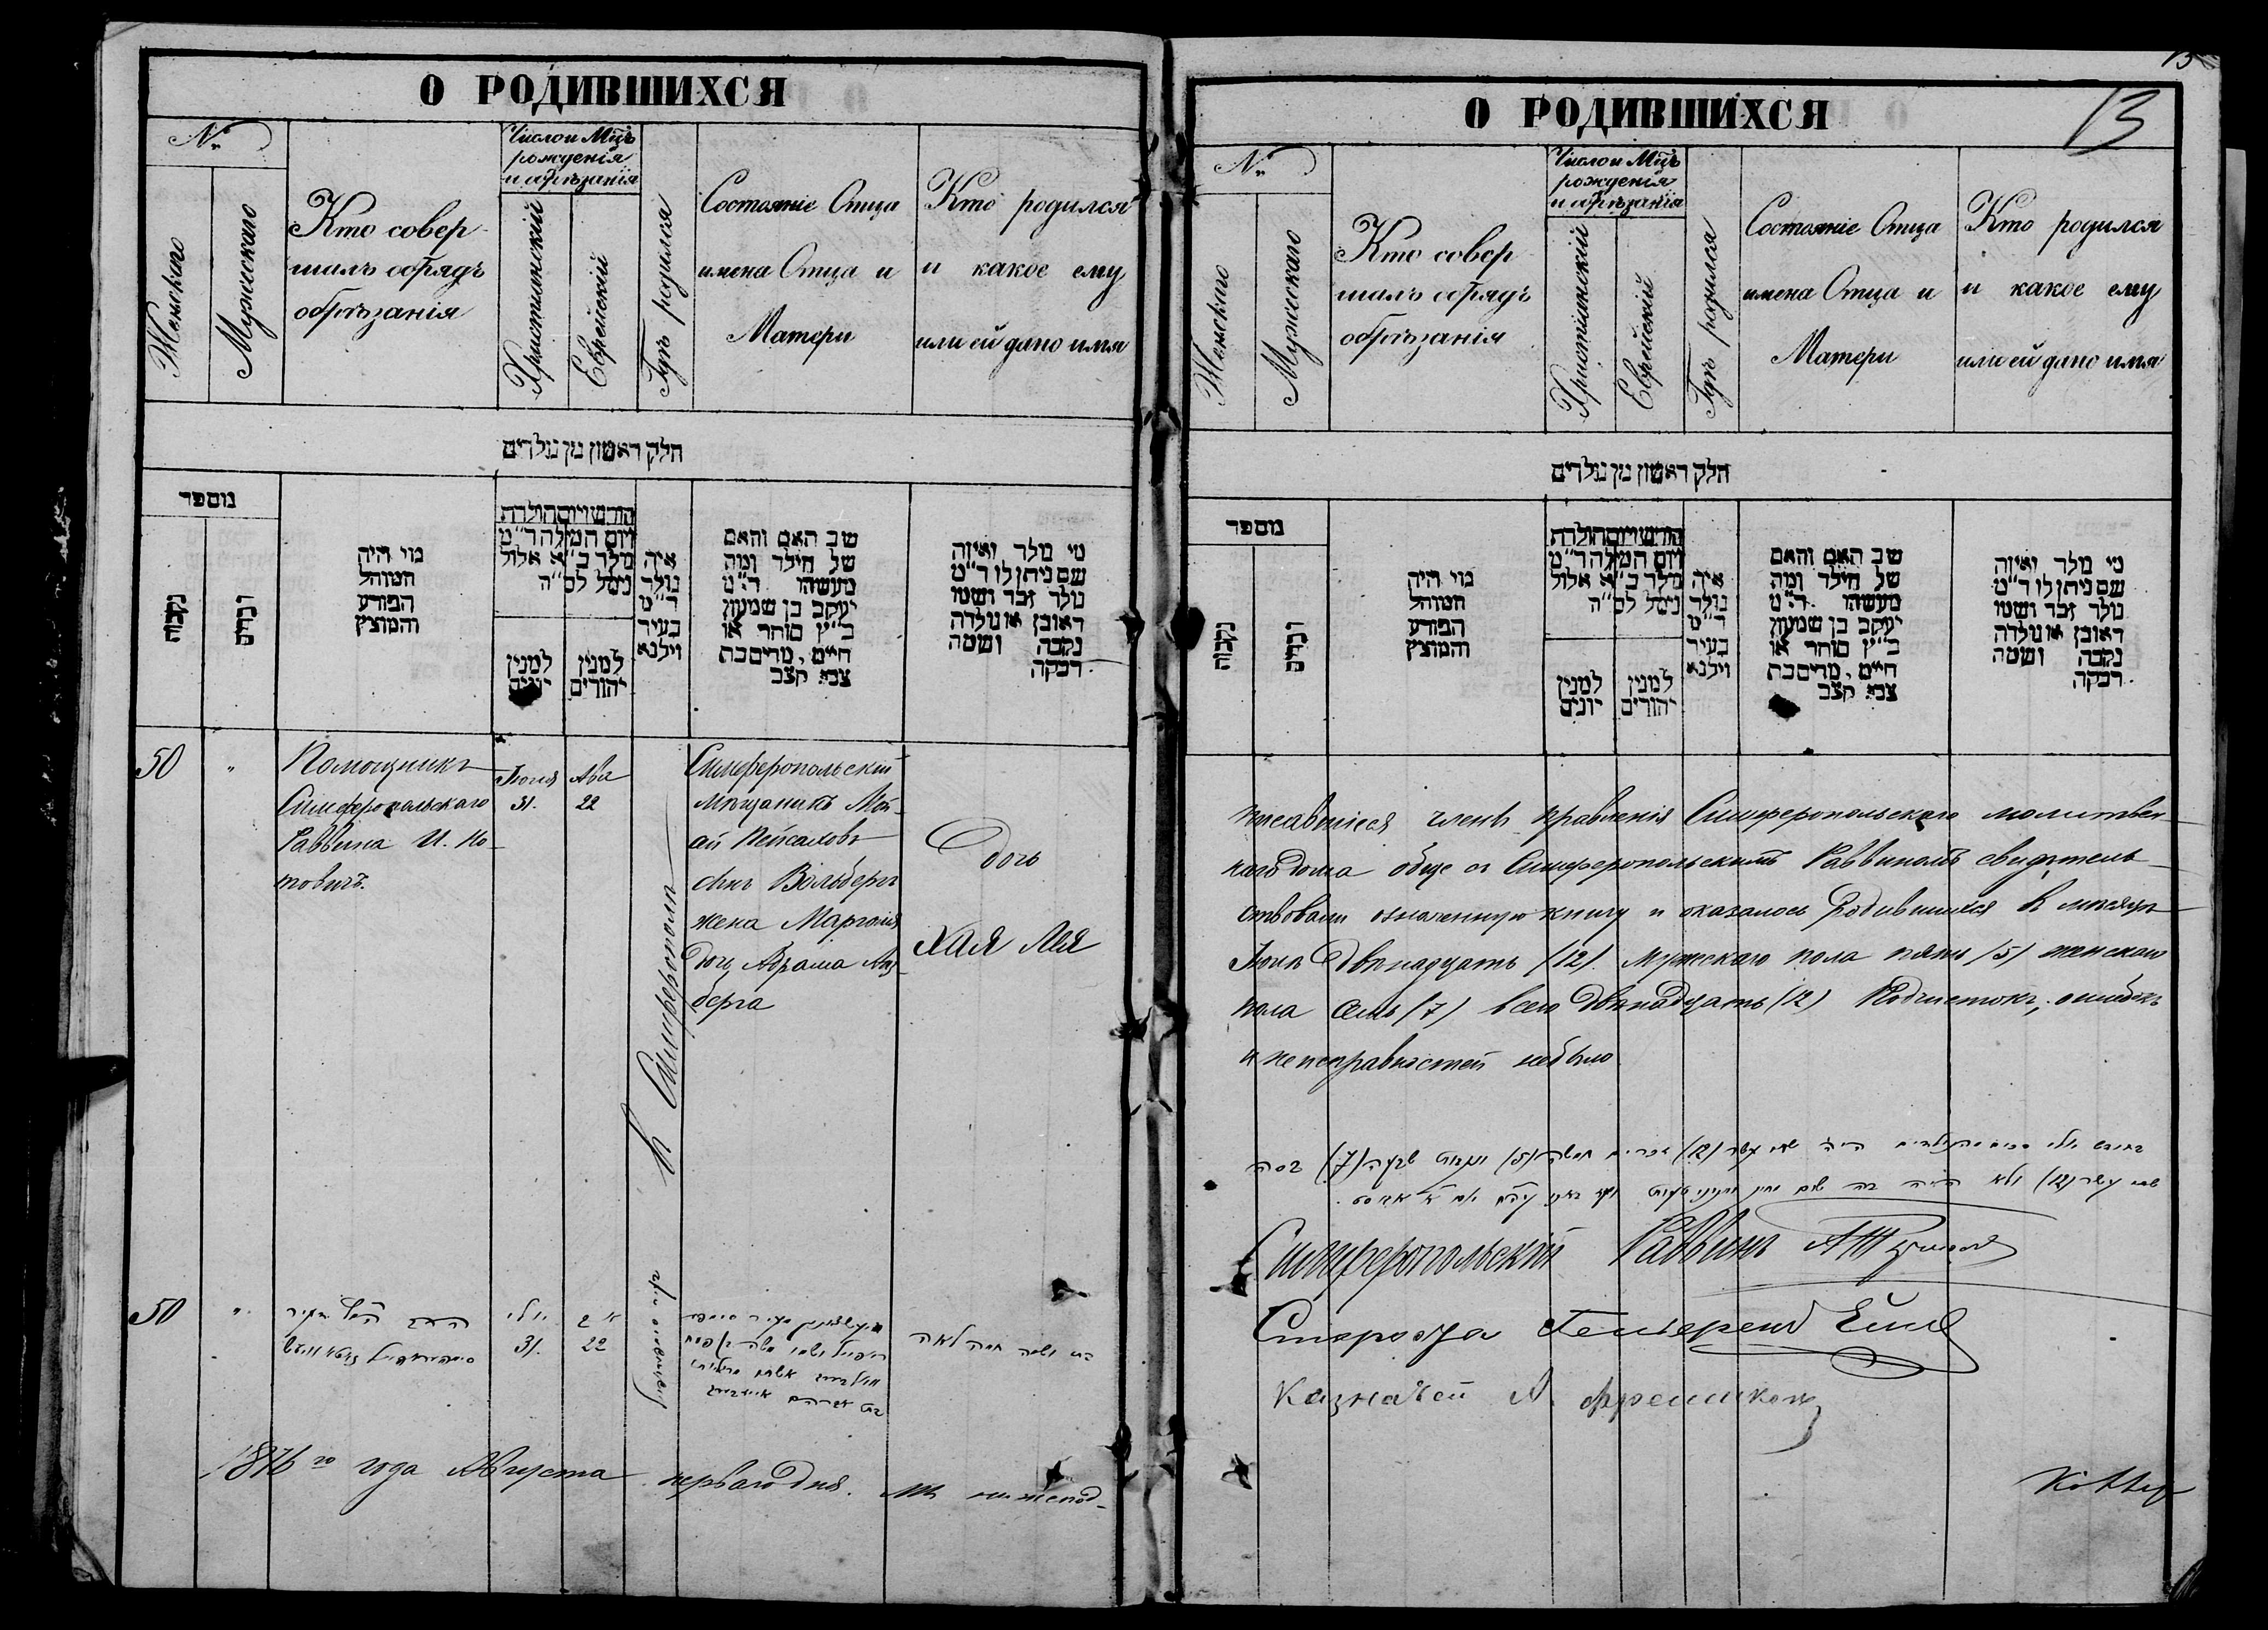 О РОДИВШИХСЯ
№
Женскаго
Мужскаго
Кто совер
шалъ обрядъ
обрѣзанія
Число и Мцъ
рожденія
и обрѣзанія
Христіанскій
Еврейскій
Гдѣ родился
Состояніе Отца
имена Отца и
Матери
Кто родился
и какое ему
или ей дано имя
חלק ראשון מן נולדים
מספר
נקבות
זכרים
מי היה
המוהל
הפורע
והמוצץ
חודש ויום הולדת
ויום המילה ד"מ
נולד כ"א אלול
נימל לס"ה
למנין
יונים
למנין
יהודים
איה
נולד
ד"מ
בעיר
ווילנא
שב האם והאם
של הילד ומה
מעשהו ד"מ
יעקב בן שמעון
כ"ץ סוחר או
חייט, מרים בת
צבי קצב
מי נולד ואיזה
שם ניתן לו ד"מ
נולד זכר ושמו
ראובן או נולדה
נקבה ושמה
רבקה
50 "
Помощникъ
Симферопольскаго
Раввина И. Ко-
товичъ.
Іюля
31.
Ава
22
в Симферополѣ
Симферопольскій
мѣщанинъ Мой-
сынъ Вольбергъ
жена
дочь Абрама
берга
Дочь
ХАЯ Лея
50 "
יולי
31.
אב
22
בת ושמה חיה לאה
1876го года Августа перваго дня. Мы нижепод-
13
О РОДИВШИХСЯ
13
№
Женскаго
Мужскаго
Кто совер
шалъ обрядъ
обрѣзанія
Число и Мцъ
рожденія
и обрѣзанія
Христіанскій
Еврейскій
Гдѣ родился
Состояніе Отца
имена Отца и
Матери
Кто родился
и какое ему
или ей дано имя
חלק ראשון מן נולדים
מספר
נקבות
זכרים
מי היה
המוהל
הפורע
והמוצץ
חודש ויום הולדת
ויום המילה ד"מ
נולד כ"א אלול
נימל לס"ה
למנין
יונים
למנין
יהודים
איה
נולד
ד"מ
בעיר
ווילנא
שב האם והאם
של הילד ומה
מעשהו ד"מ
יעקב בן שמעון
כ"ץ סוחר או
חייט, מרים בת
צבי קצב
מי נולד ואיזה
שם ניתן לו ד"מ
נולד זכר ושמו
ראובן או נולדה
נקבה ושמה
רבקה
писавшіеся члены правленія Симферопольскаго молитвен-
наго дома обще съ Симферопольскимъ Раввиномъ свидѣтель-
ствовали означенную книгу и оказалось родившихся в мѣсяцѣ
Іюлѣ двѣнадцать (12). Мужескаго пола пять (5) женскаго
пола семь (7) всего двѣнадцать (12) Подчистокъ, ошибокъ
и неисправностей небыло
שנים עשר (12) חמשה (5) ונקבות שבעה (7)
שנים עשר (12) ולא היה בה שום
Симферопольскій Раввинъ
Староста
Казначей А.